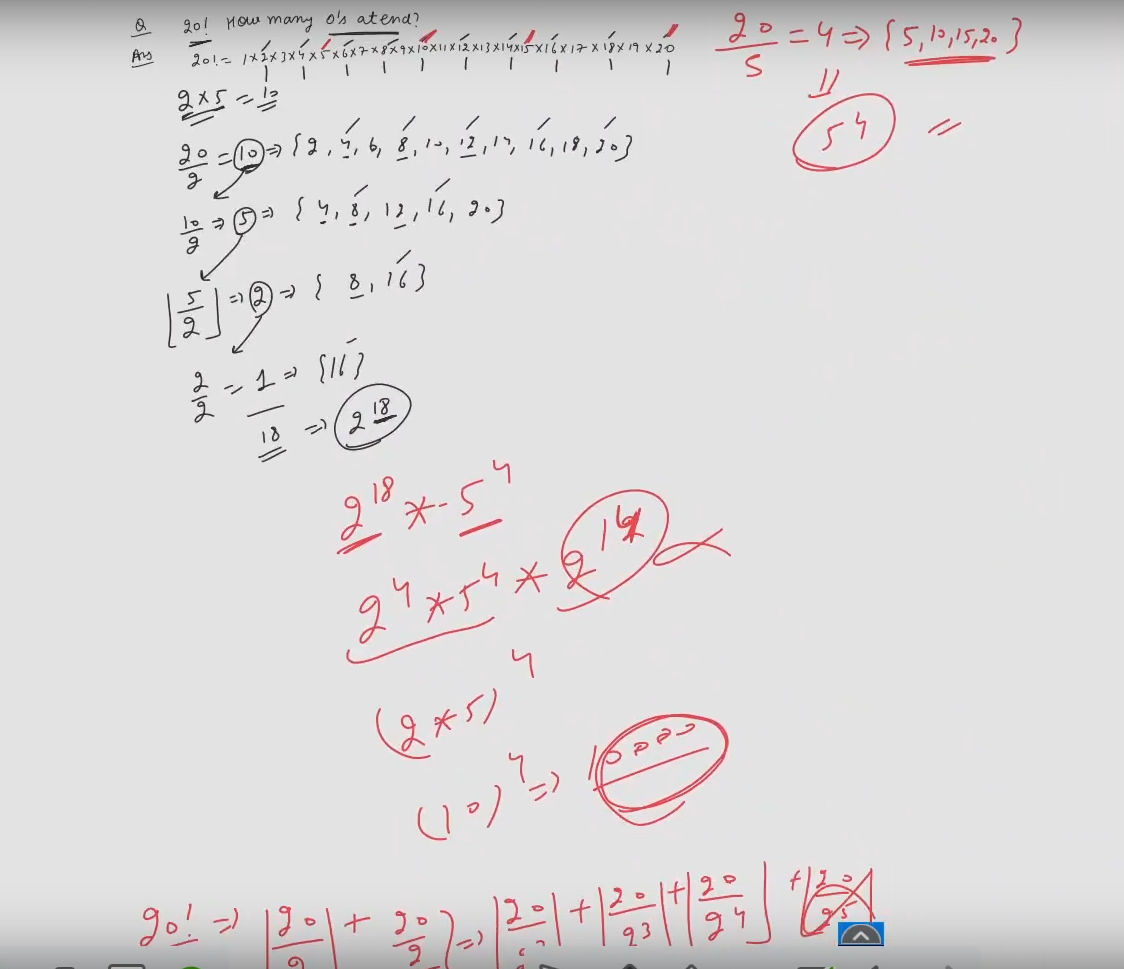 Q 20! How many 0's at end?
Ans 20! = 1×2×3×4×5×6×7×8×9×10×11×12×13×14×15×16×17×18×19×20
2×5 = 10
20/2 = 10 ⇒ {2, 4, 6, 8, 10, 12, 14, 16, 18, 20}
10/2 ⇒ 5 ⇒ {4, 8, 12, 16, 20}
⌊5/2⌋ ⇒ 2 ⇒ {8, 16}
2/2 = 1 ⇒ {16}
18 ⇒ 2^18
20/5 = 4 ⇒ {5, 10, 15, 20}
5^4 =
2^18 * 5^4
2^4 * 5^4 * 2^14
(2*5)^4
(10)^4 ⇒ 10000
20! ⇒ |20/2| + 20/2 ⇒ |20 + |20/2^3| + |20/2^4| + |20/25